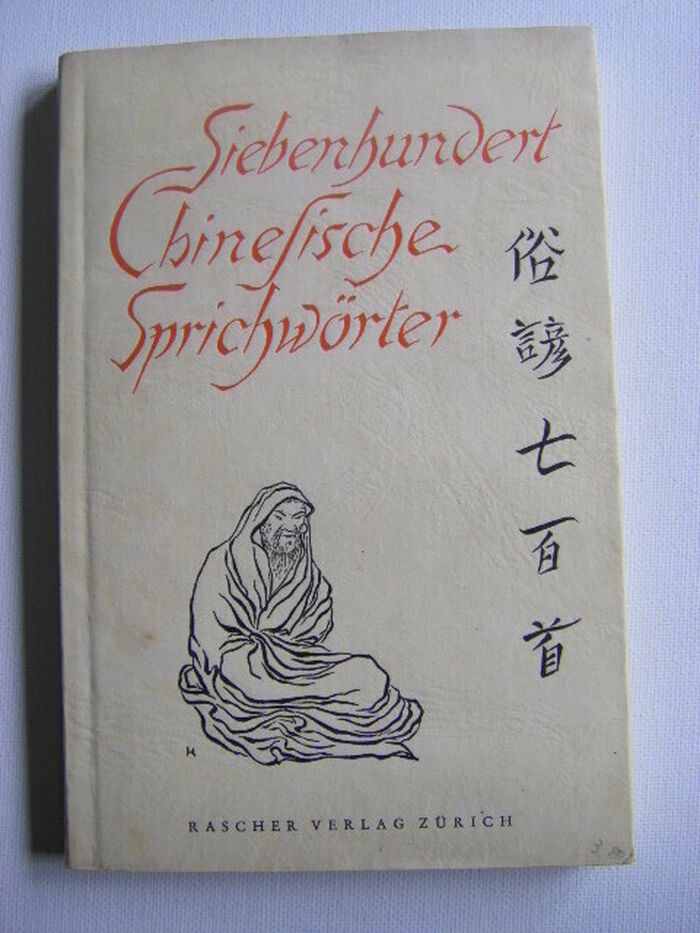 Siebenhundert
Chinesische
Sprichwörter
俗諺七百首
RASCHER VERLAG ZÜRICH